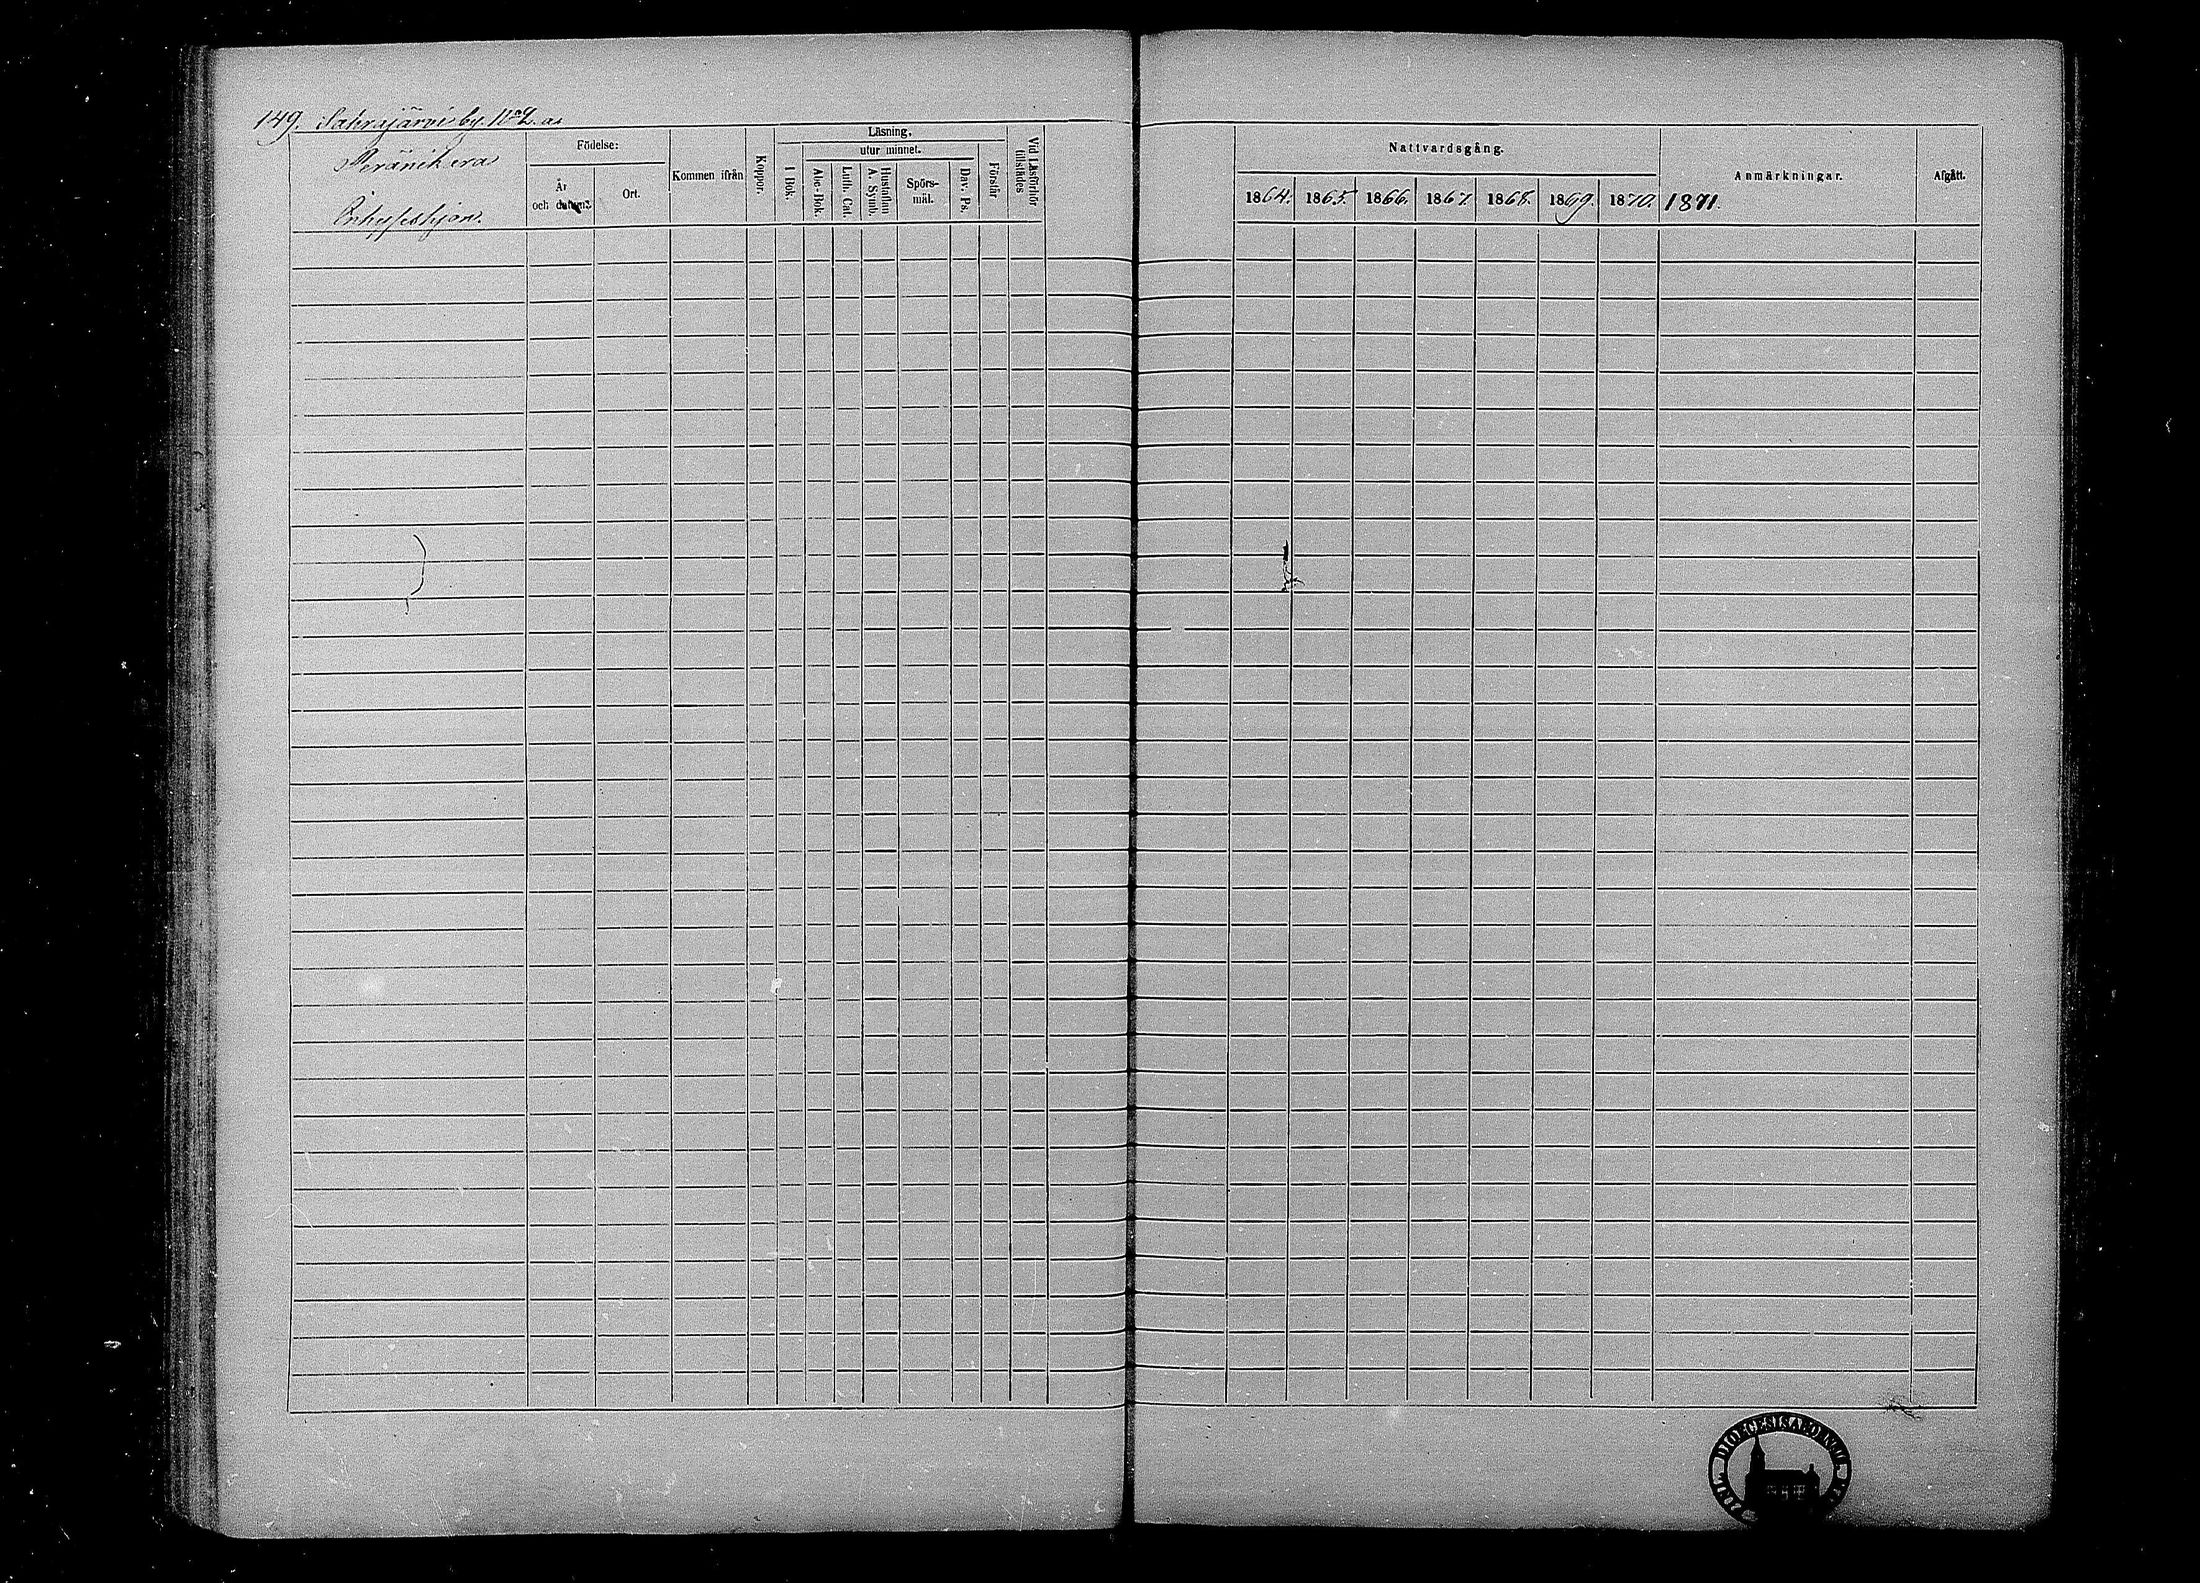 149. Sahrajärvi by. N:o 2. a.
Peränikera
Inhyseshjon.
Födelse:
År och datum. Ort.
Kommen ifrån
Koppor.
Läsning.
I Bok.
utur minnet.
Abc-Bok.
Luth. Cat.
Hustaflan A. Symb.
Spörs-mål.
Dav. Ps.
Förstår
Vid Läsförhör tillstädes
Nattvardsgång.
1864. 1865. 1866. 1867. 1868. 1869. 1870. 1871.
Anmärkningar.
Afgått.